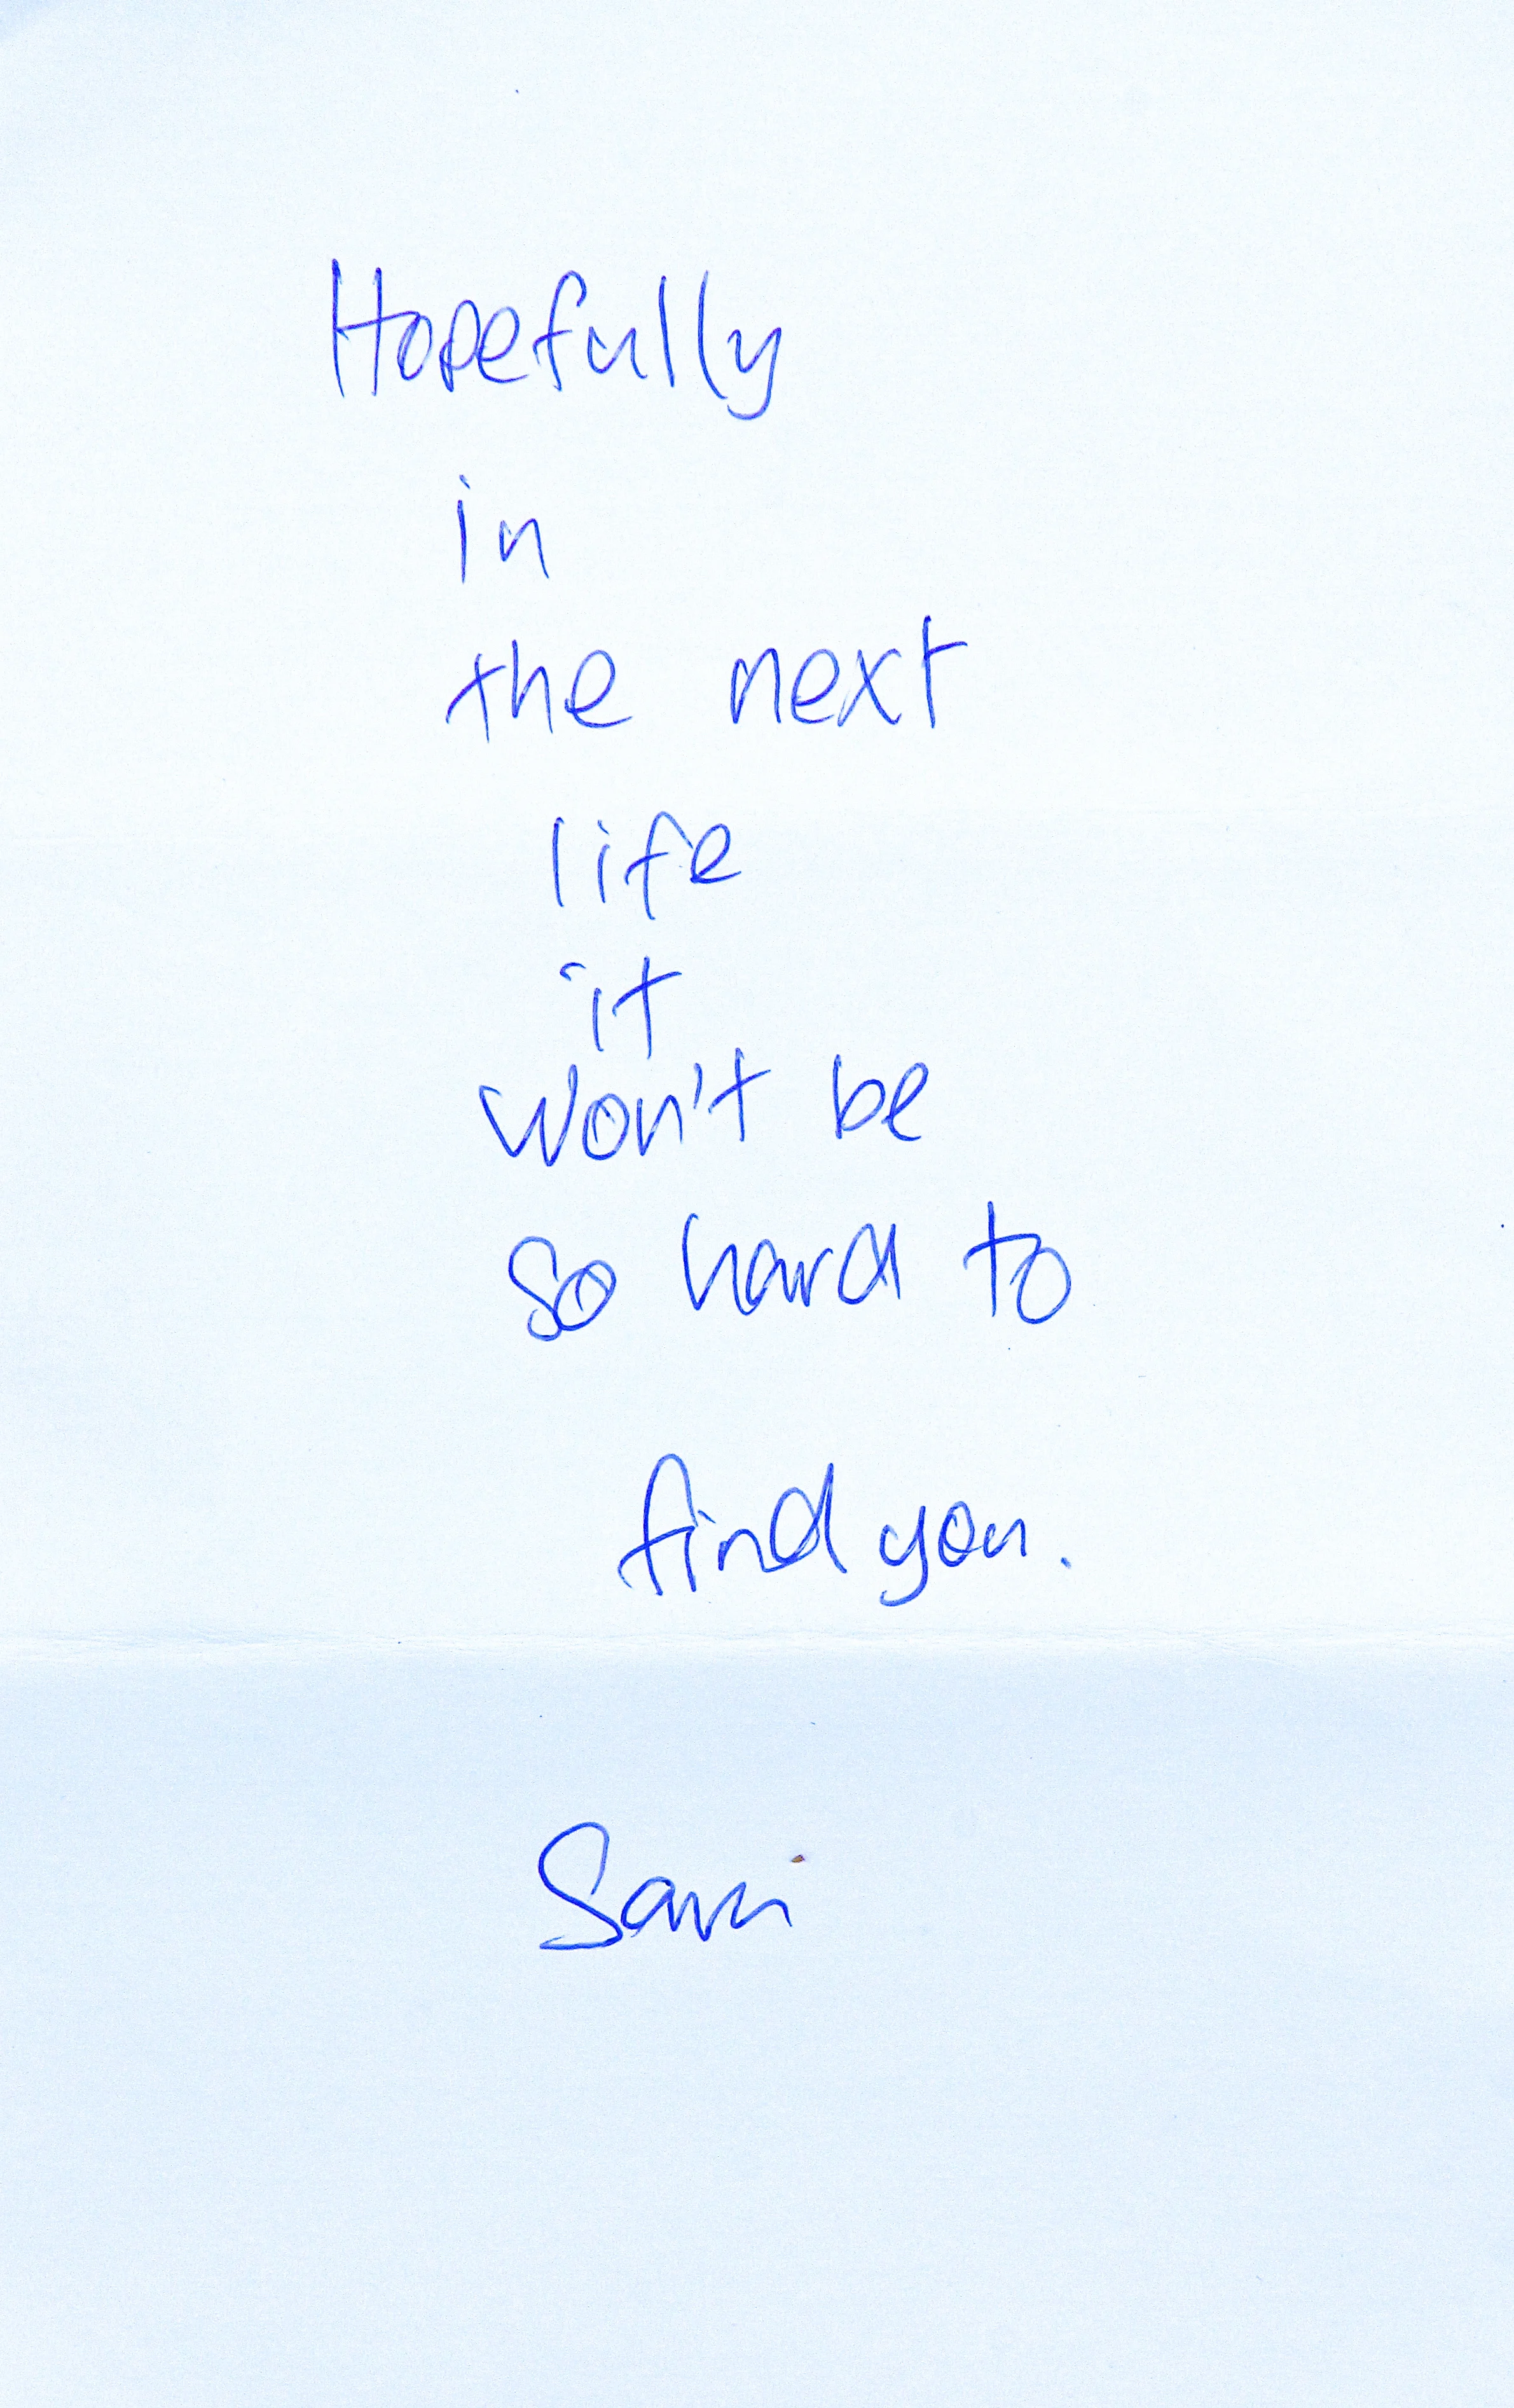 Hopefully
in
the next
life
it
won't be
so hard to
find you.